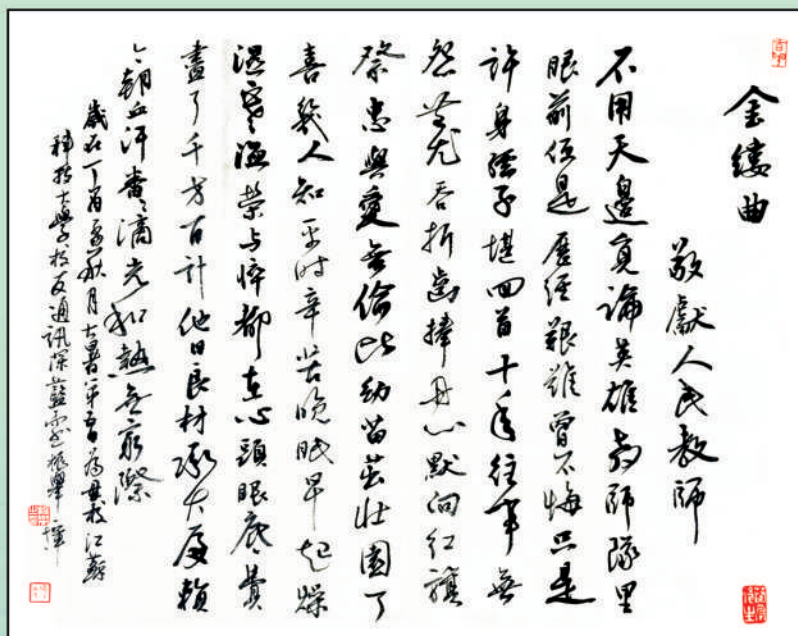 金縷曲
敬獻人民教師
不用天邊覓論英雄教師隊里
眼前便是歷經艱難曾不悔只是
許身孺子堪回首十年往事無
怨無尤吞折齒捧丹心默向紅旗
祭忠與愛無倫比幼苗茁壯園丁
喜幾人知平時辛苦晚眠早起燥
濕寒溫榮與悴都在心頭眼底費
盡了千方百計他日良材承大廈賴
今朝血汗番番滴光和熱無窮際
歲在丁酉月大暑為母校江蘇
科技大學校友通訊深藍振舉